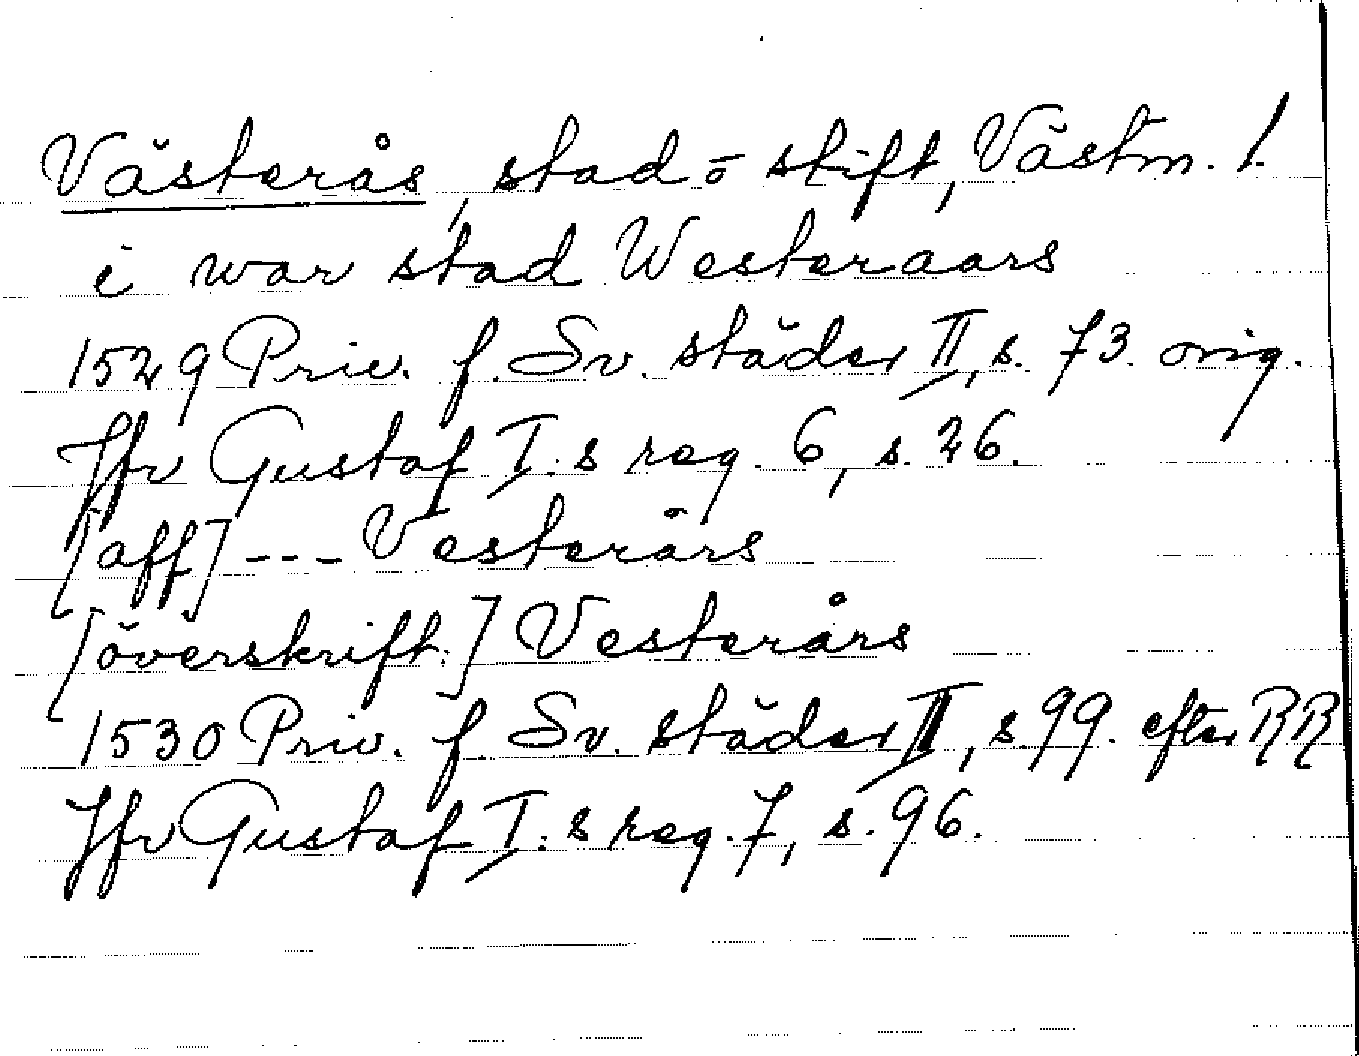 Västerås, stad o stift, Västm. l.
i war stad Westeraars
1529 Priv. f. Sv. städer II, s. 73. orig.
Jfr Gustaf I:s reg. 6, s. 26.
[aff] --- Vesterårs
[överskrift:] Vesterårs
1530 Priv. f. Sv. städer II, s 99. efter RR
Jfr Gustaf I:s reg. 7, s. 96.